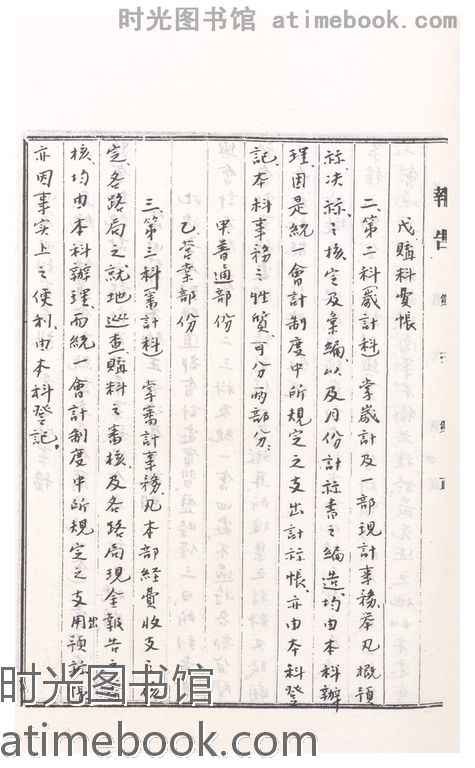 时光图书馆 atimebook.com
報告
戊購料賬帳
二、第二科(歲計科)掌歲計及一部現計事務、舉凡概預
祘決祘之核定及彙編以及月份計祘書之編造、均由本科辦
理、因是統一會計制度中所規定之支出計祘帳、亦由本科登
記、本科事務之性質、可分兩部分、
甲普通部份
乙營業部份
三、第三科(審計科)掌審計事務、凡本部經費收支之
定、各路局之就地巡查、購料之審核、及各路局現金報告之
核、均由本科辦理、而統一會計制度中所規定之支出預祘
亦因事實上之便利、由本科登記。
时光图书馆
atimebook.com